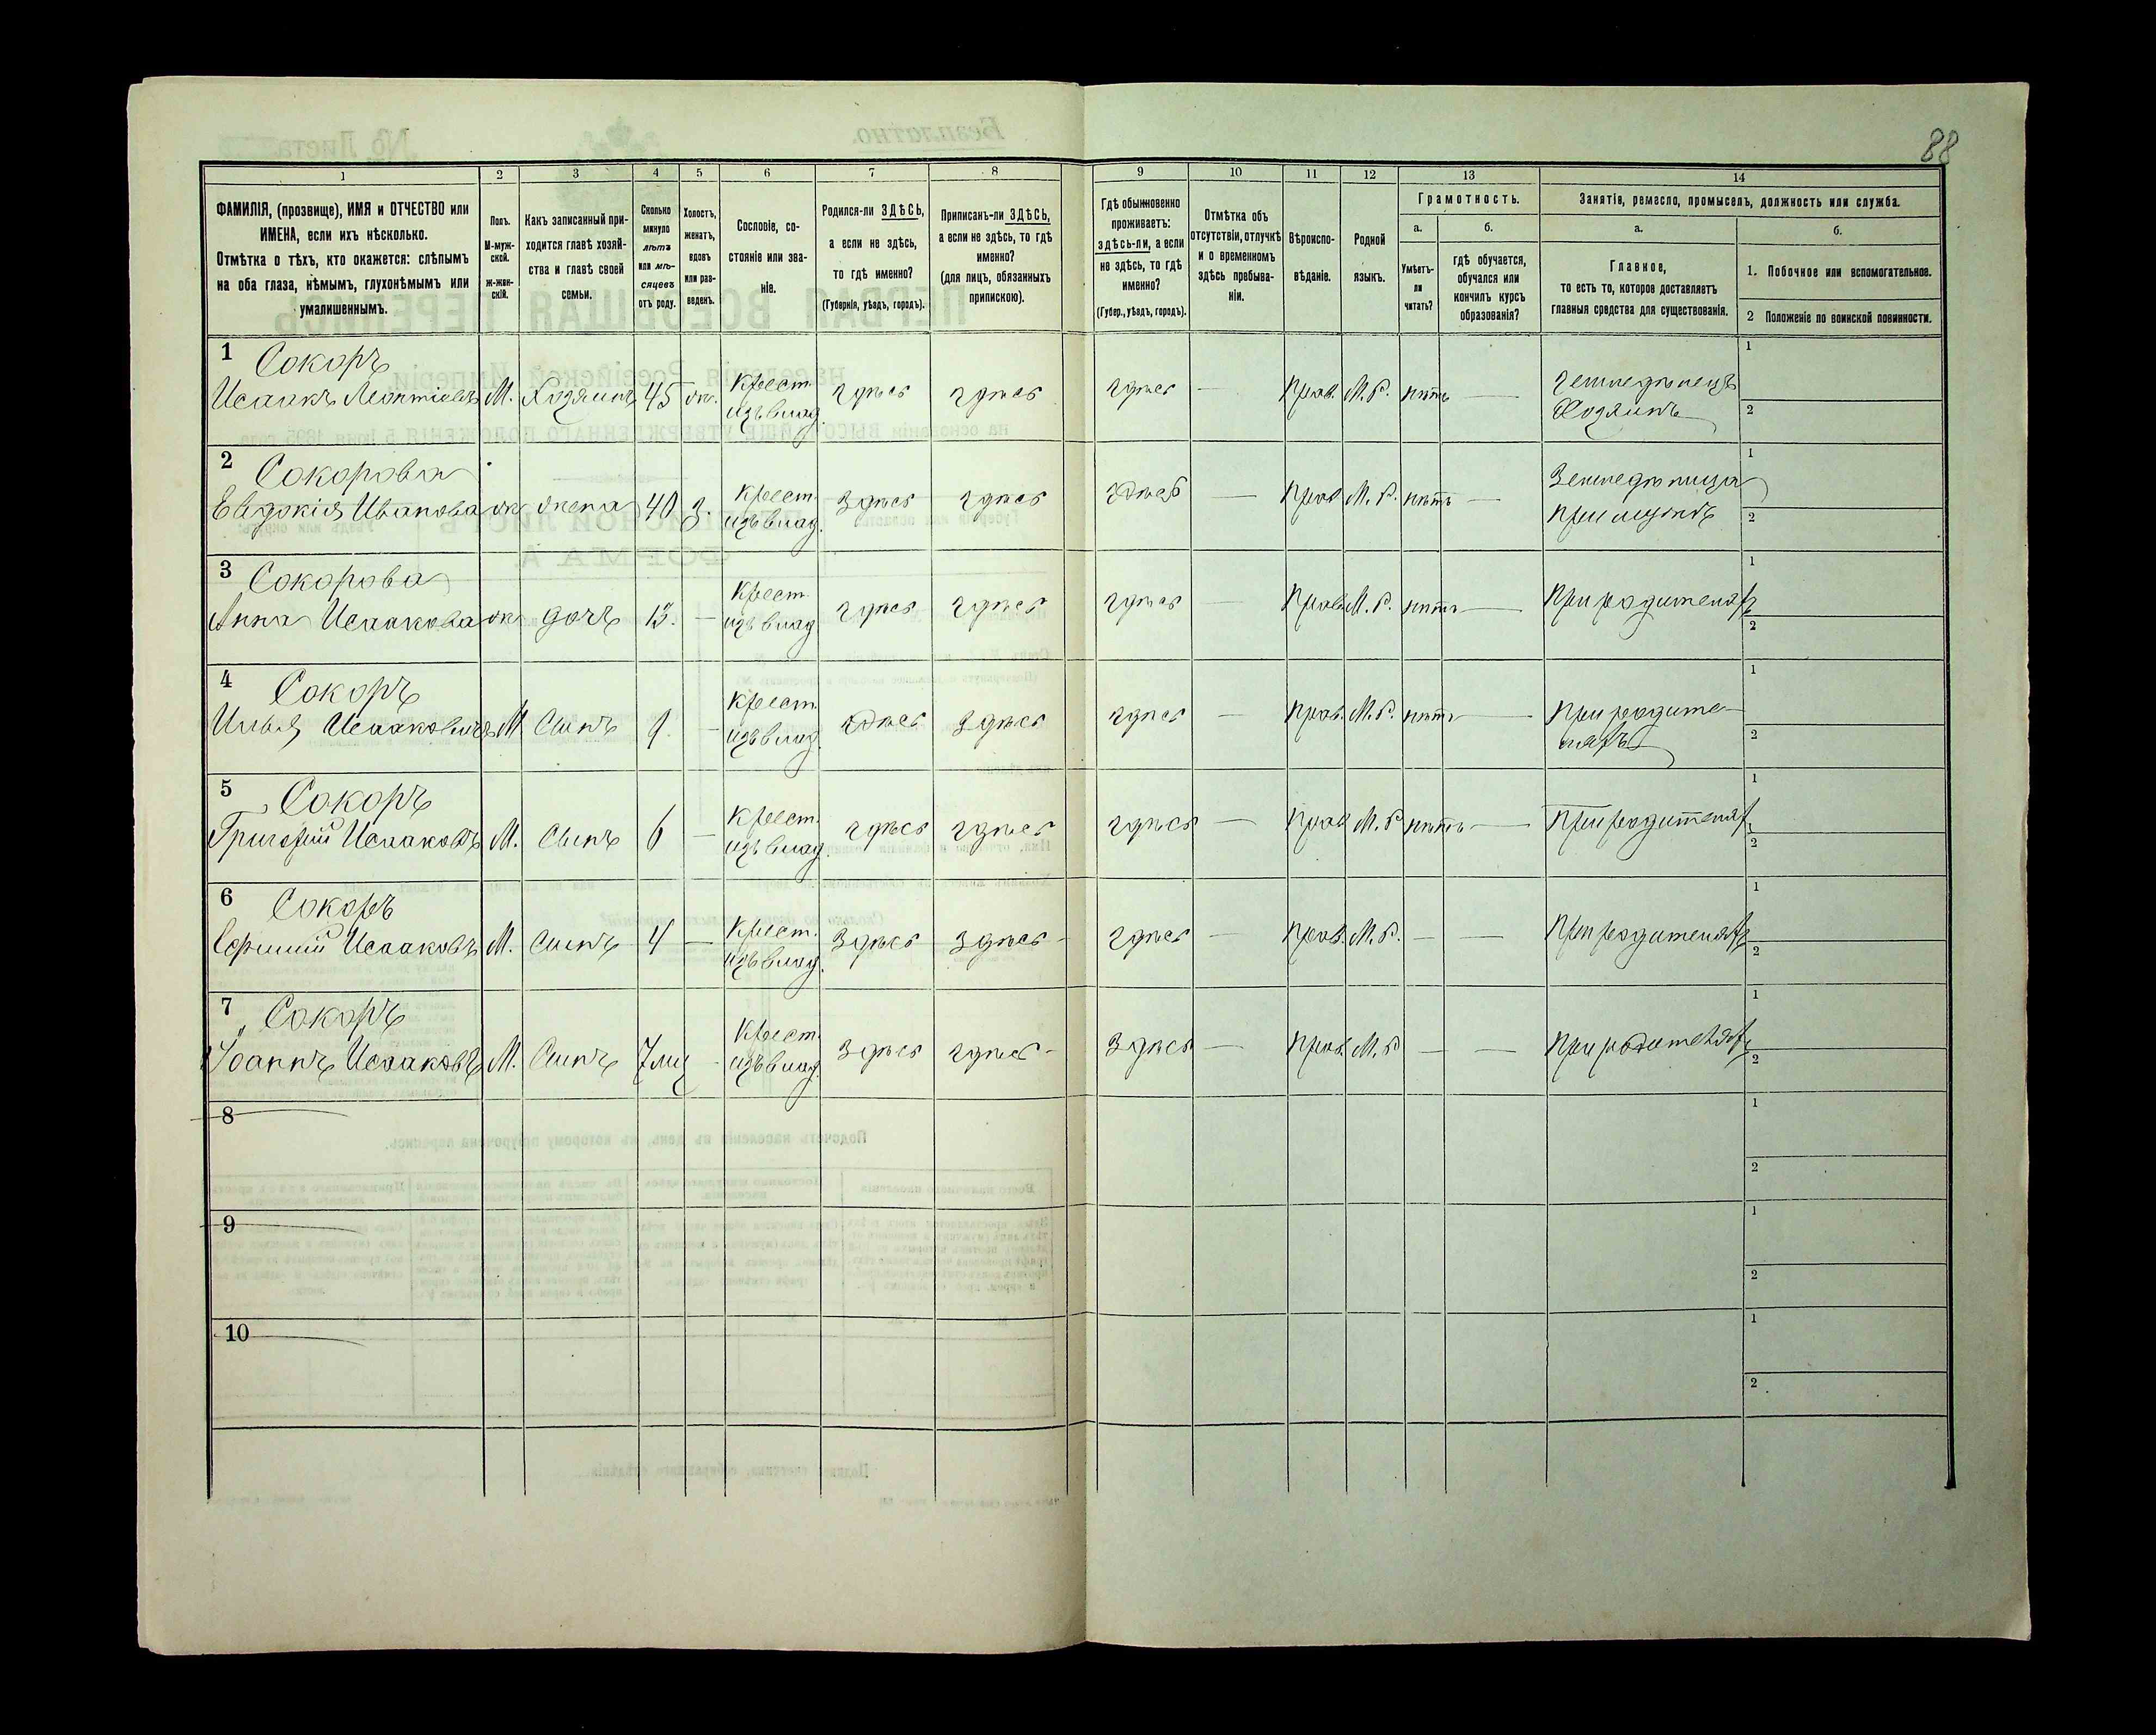 88
1 2 3 4 5 6 7 8 9 10 11 12 13 14
ФАМИЛІЯ, (прозвище), ИМЯ и ОТЧЕСТВО или
ИМЕНА, если ихъ нѣсколько.
Отмѣтка о тѣхъ, кто окажется: слѣпымъ
на оба глаза, нѣмымъ, глухонѣмымъ или
умалишеннымъ.
Полъ.
М-муж-
ской.
Ж-жен-
скій.
Какъ записанный при-
ходится главѣ хозяй-
ства и главѣ своей
семьи.
Сколько
минуло
лѣтъ
или мѣ-
сяцевъ
отъ роду.
Холостъ,
женатъ,
вдовъ
или раз-
веденъ.
Сословіе, со-
стояніе или зва-
ніе.
Родился-ли ЗДѢСЬ,
а если не здѣсь,
то гдѣ именно?
(Губернія, уѣздъ, городъ).
Приписанъ-ли ЗДѢСЬ,
а если не здѣсь, то гдѣ
именно?
(для лицъ, обязанныхъ
припискою).
Гдѣ обыкновенно
проживаетъ:
здѣсь-ли, а если
не здѣсь, то гдѣ
именно?
(Губер., уѣздъ, городъ).
Отмѣтка объ
отсутствіи, отлучкѣ
и о временномъ
здѣсь пребыва-
ніи.
Вѣроиспо-
вѣданіе.
Родной
языкъ.
Грамотность.
а.
Умѣетъ-
ли
читать?
б.
гдѣ обучается,
обучался или
кончилъ курсъ
образованія?
Занятіе, ремесло, промыселъ, должность или служба.
а.
Главное,
то есть то, которое доставляетъ
главныя средства для существованія.
б.
1. Побочное или вспомогательное.
2 Положеніе по воинской повинности.
1 Сокоръ
Исаакъ Леонтіевъ М. Хозяинъ 45 ж. Крест. изъ влад. здѣсь здѣсь здѣсь — Прав. М.Р. нѣтъ — Земледѣлецъ
Хозяинъ
1
2
2 Сокорова
Евдокія Иванова ж жена 40 з. Крест. изъ влад. Здѣсь здѣсь здѣсь — Прав М.Р. нѣтъ — Земледѣлица
при мужѣ
1
2
3 Сокорова
Анна Исаакова ж дочь 13. — Крест. изъ влад здѣсь здѣсь здѣсь — Прав. М.Р. нѣтъ — При родителяхъ
1
2
4 Сокоръ
Илья Исааковичъ М Сынъ 9. — Крест. изъ влад. здѣсь Здѣсь здѣсь — Прав. М.Р. нѣтъ — При родите-
ляхъ
1
2
5 Сокоръ
Григорій Исааковъ М. Сынъ 6 — Крест. изъ влад. здѣсь здѣсь здѣсь — Прав М.Р. нѣтъ — При родителях
1
2
6 Сокоръ
Ефимій Исааковъ М. Сынъ 4 — Крест. изъ влад. Здѣсь здѣсь здѣсь — Прав. М.Р. — — При родителяхъ
1
2
7 Сокоръ
Іоаннъ Исааковъ М. Сынъ 7 мц — Крест. изъ влад. Здѣсь здѣсь Здѣсь — Прав. М.Р — — При родителях
1
2
8
1
2
9
1
2
10
1
2